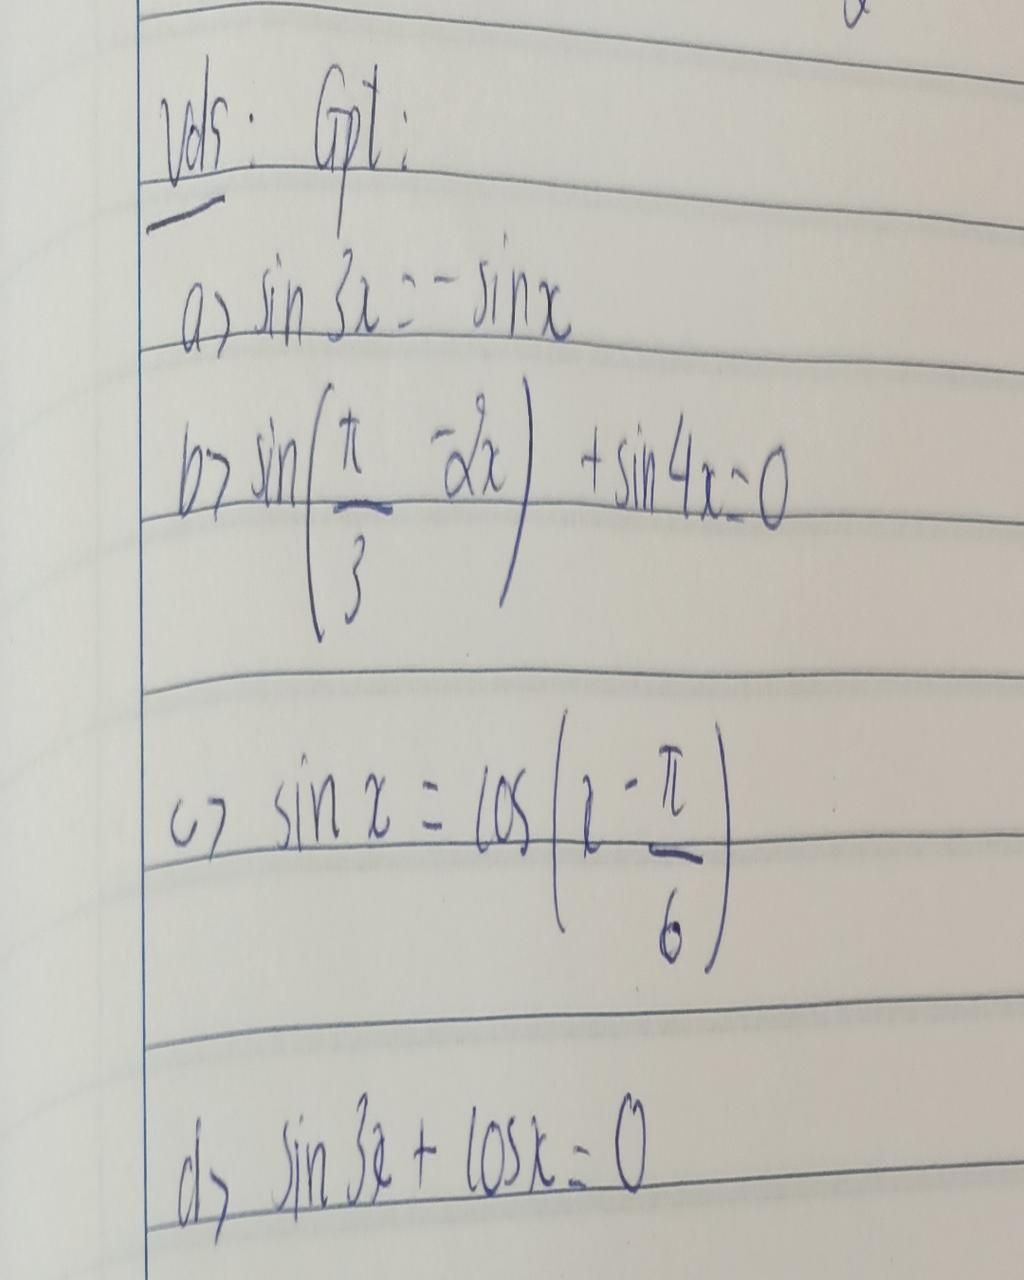 Vd5: Gpt:
a> sin 3x = - sin x
b> sin(π/3 - 2x) + sin 4x = 0
c> sin x = cos(x - π/6)
d> sin 3x + cos x = 0